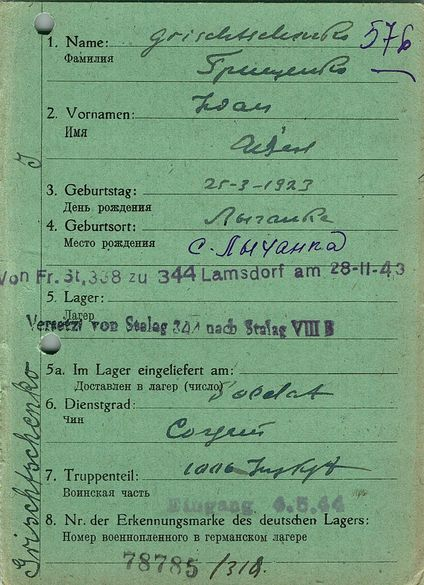 1. Name: Grischtschenko 576
Фамилия Грищенко
2. Vornamen: Iwan
Имя Иван
3. Geburtstag: 25-3-1923
День рождения
4. Geburtsort: Лычанка
Место рождения с. Лычанка
Von Fr. St, 338 zu 344 Lamsdorf am 28-11-43
5. Lager:
Лагер
Versetzt von Stalag 344 nach Stalag VIII B
5a. Im Lager eingeliefert am:
Доставлен в лагер (число)
6. Dienstgrad: Soldat
Чин
7. Truppenteil:
Воинская часть
Eingang 4.5.44
8. Nr. der Erkennungsmarke des deutschen Lagers:
Номер военнопленного в германском лагере
78785 /318.
Grischtschenko J